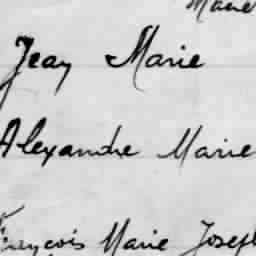 Marie
Jean Marie
Alexandre Marie
François Marie Joseph